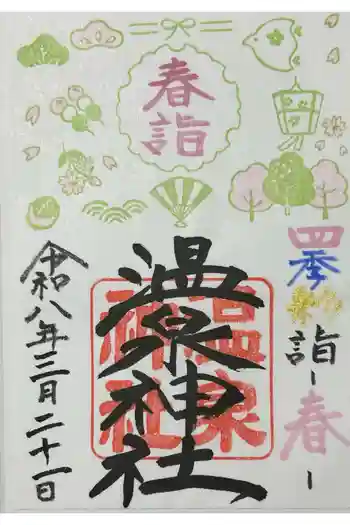 春詣
四季彩詣
- 春 -
温泉神社
温泉
神社
令和八年三月二十一日